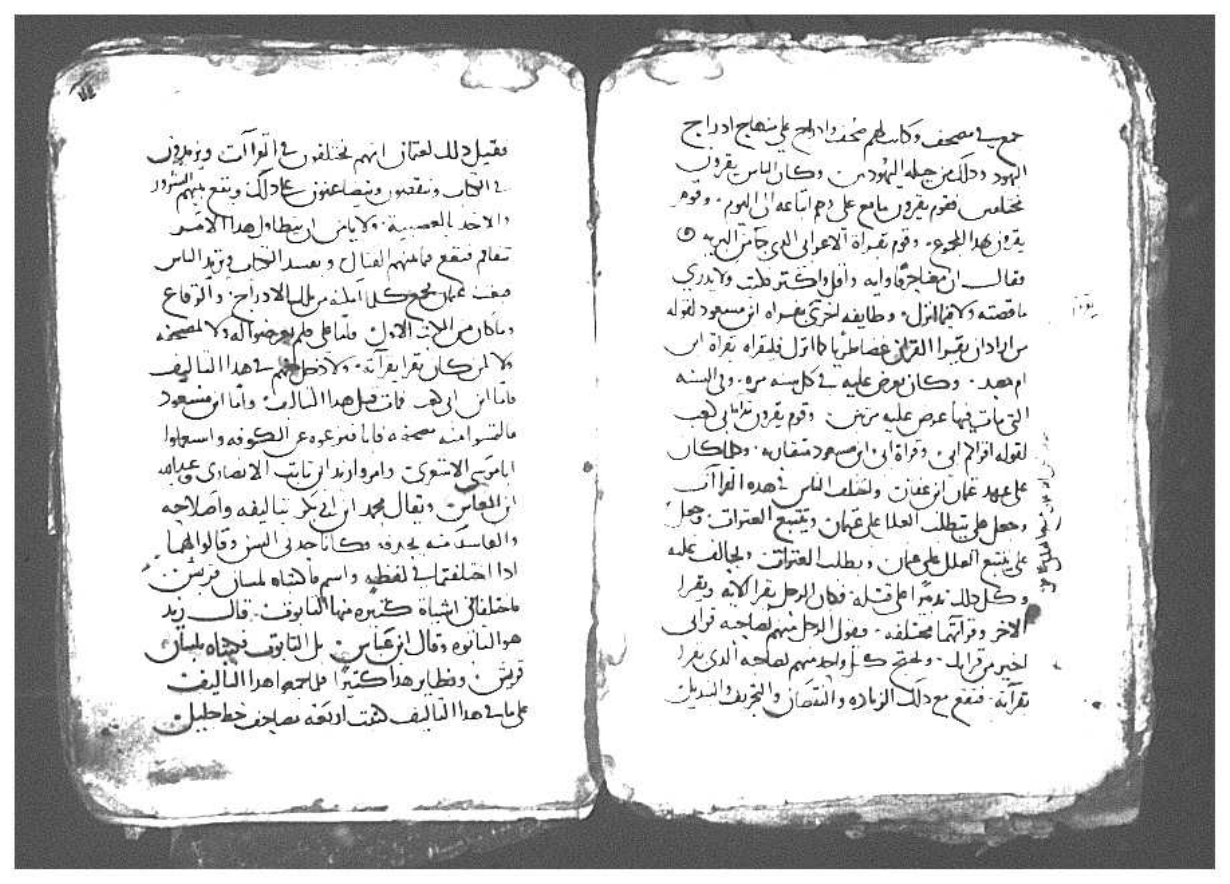 جمع في مصحف وكانت لهم صحف وادراج على منهاج ادراج
اليهود وذلك من حيله اليهود وكان الناس يقرون
مختلفين فقوم يقرون ما مع على وهم اتباعه الى اليوم. وقوم
يقرون بهدا المجموع. وقوم بقراة الاعرابي الذي جا من البريه
فقال ان معي اية واقل واكثر ولا يدرى
ما قصته ولا فيما انزل. وطايفه اخرى بقراه ابن مسعود لقوله
من اراد ان يقرا القران غضا طريا كما انزل فليقراه بقراة ابن
ام معبد. وكان يعرض عليه في كل سنه مره. وفي السنه
التي مات فيها عرض عليه مرتين. وقوم يقرون بقراة ابي كعب
لقوله اقراكم ابى. وقراة ابى وابن مسعود متقاربه. فلما كان
على عهد عثمان ابن عفان واختلف الناس في هذه القراآت
وجعل على يتطلب العلل على عثمان ويتتبع العثرات. وجعل
على يتتبع العلل على عثمان ويطلب العثرات. ويخالف عليه
وكل ذلك تدبيرا على قتله. فكان الرجل يقرا الايه ويقرا
الاخر وقرآتهما مختلفه. فيقول الرجل منهم لصاحبه قراتى
اخير من قراتك. ويحتج كل واحد منهم لصاحبه الذى يقرا
بقرآته. فيقع مع ذلك الزياده والنقصان والتحريف والتبديل
فقيل ذلك لعثمان انهم يختلفون في القراآت ويزيدون
في الكتاب وينقصون ويتضاغنون على ذلك ويقع بينهم الشرور
والاخد بالعصبية. ولا يامن ان يتطاول هدا الامر
تفاقم فيقع فيما بينهم القتال ويفسد الكتاب ويرتد الناس
فبعث عثمان فجمع كلما امكنه من تلك الادراج. والرقاع
وما كان من الاول. فاما على فلم يعرضوا له ولا لمصحفه
ولا لمن كان يقرا بقرآته. ولا ادخل معهم في هدا التاليف
فاما ابن ابى كعب فمات قبل هدا التاليف. واما ابن مسعود
فالتمسوا منه مصحفه فابا فنزعوه عن الكوفه واستعملوا
ابا موسى الاشعرى وامروا زيد ابن ثابت الانصارى وعبدالله
ابن العباس. ويقال محمد ابن ابي بكر بتاليفه واصلاحه
والفاسد منه بحدفه وكانا حدثى السن وقالوا لهما
ادا اختلفتما في لفظه واسم فاكتباه بلسان قريش
فاختلفا في اشياء كثيره منها التابوت. قال زيد
هو التابوه وقال ابن عباس. بل التابوت فكتباه بلسان
قريش. ونظاير هدا كثيرا فلما جمعا هدا التاليف
على ما في هدا التاليف كتبت اربعه مصاحف خط جليل.